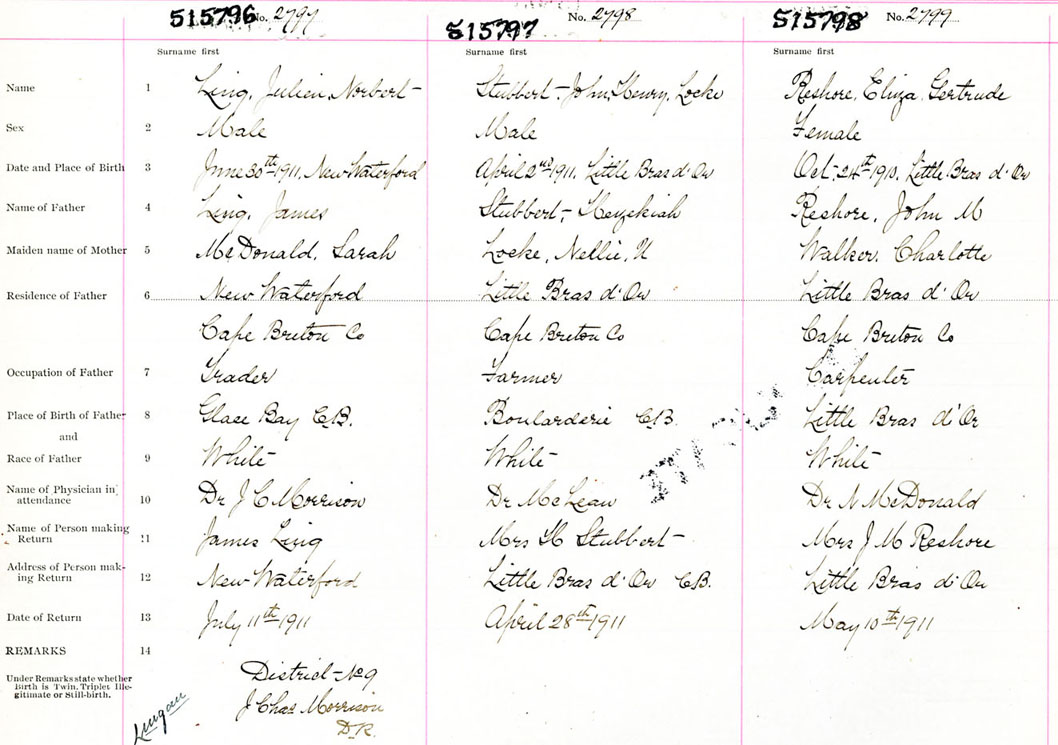 515796 No. 2797 515797 No. 2798 515798 No. 2799
Surname first Surname first Surname first
Name 1 Ling, Julien, Norbert Stubbert, John, Henry, Locke Reshore, Eliza, Gertrude
Sex 2 Male Male Female
Date and Place of Birth 3 June 30th 1911, New Waterford April 2nd 1911, Little Bras d'Or Oct. 24th 1910, Little Bras d'Or
Name of Father 4 Ling, James Stubbert, Hezekiah Reshore, John M
Maiden name of Mother 5 McDonald, Sarah Locke, Nellie, Walker, Charlotte
Residence of Father 6 New Waterford Little Bras d'Or Little Bras d'Or
Cape Breton Co Cape Breton Co Cape Breton Co
Occupation of Father 7 Trader Farmer Carpenter
Place of Birth of Father 8 Glace Bay C.B. Boularderie C.B. Little Bras d'Or
and
Race of Father 9 White White White
Name of Physician in
attendance 10 Dr J C Morrison Dr McLean Dr N McDonald
Name of Person making
Return 11 James Ling Mrs H Stubbert Mrs J M Reshore
Address of Person mak-
ing Return 12 New Waterford Little Bras d'Or C.B. Little Bras d'Or
Date of Return 13 July 11th 1911 April 28th 1911 May 10th 1911
REMARKS 14
Under Remarks state whether
Birth is Twin, Triplet Ille-
gitimate or Still-birth.
District No 9
J Chas Morrison
D.R.
Lingan